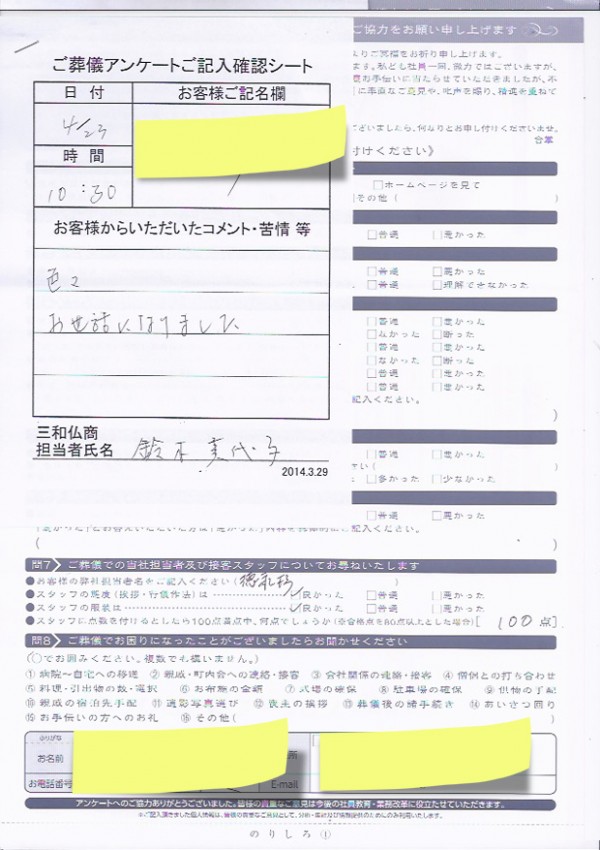 ご協力をお願い申し上げます
ご葬儀アンケートご記入確認シート
日 付
お客様ご記名欄
4/23
時 間
10:30
お客様からいただいたコメント・苦情 等
色々
お世話になりました
三和仏商
担当者氏名 鈴木 美代子
2014.3.29
付けください》
□ホームページを見て
その他(
)
□普通 □悪かった
□普通 □悪かった
□普通 □理解できなかった
□普通 □悪かった
□なかった □断った
□普通 □悪かった
□なかった □断った
□普通 □悪かった
□普通 □悪かった
記入ください。
)
□普通 □悪かった
さい(
□多かった □少なかった
□普通 □悪かった
記入ください。
(
)
問7 ご葬儀での当社担当者及び接客スタッフについてお尋ねいたします
●お客様の弊社担当者名をご記入ください(
)
●スタッフの態度(挨拶・行儀作法)は 良かった □普通 □悪かった
●スタッフの服装は 良かった □普通 □悪かった
●スタッフに点数を付けるとしたら100点満点中、何点でしょうか(※合格点を80点以上とした場合)[ 100 点]
問8 ご葬儀でお困りになったことがございましたらお聞かせください
(○でお囲みください。複数でも構いません。)
①病院～自宅への移送 ②親戚・町内会への連絡・接客 ③会社関係の連絡・接客 ④僧侶との打ち合わせ
⑤料理・引出物の数・選択 ⑥お布施の金額 ⑦式場の確保 ⑧駐車場の確保 ⑨供物の手配
⑩親戚の宿泊先手配 ⑪遺影写真選び ⑫喪主の挨拶 ⑬葬儀後の諸手続き ⑭あいさつ回り
⑮お手伝いの方へのお礼 ⑯その他(
)
ふりがな
お名前
所
お電話番号
E-mail
アンケートへのご協力ありがとうございました。皆様の貴重なご意見は今後の社員教育・業務改革に役立たせていただきます。
のりしろ①